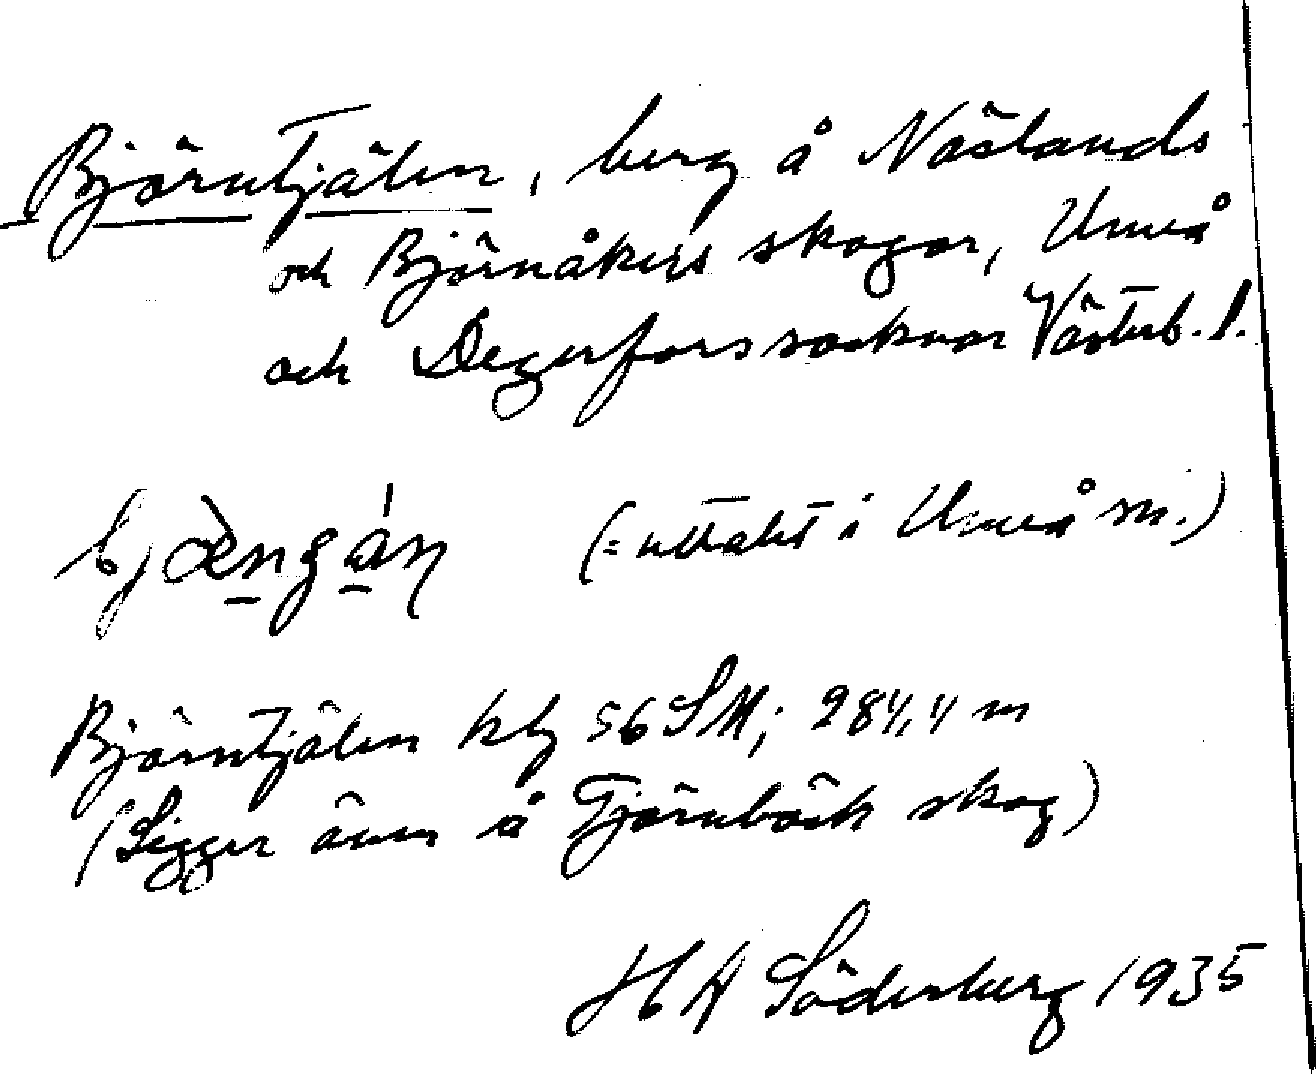 Björntjälen, berg å Näslands
och Björnåkers skogar, Umeå
och Degerfors socknar Västerb. l.
(= uttalet i Umeå sn.)
Björntjälen hbf 56 SM; 284,4 m
(Ligger även å Tjärnbäck skog)
H A Söderberg 1935